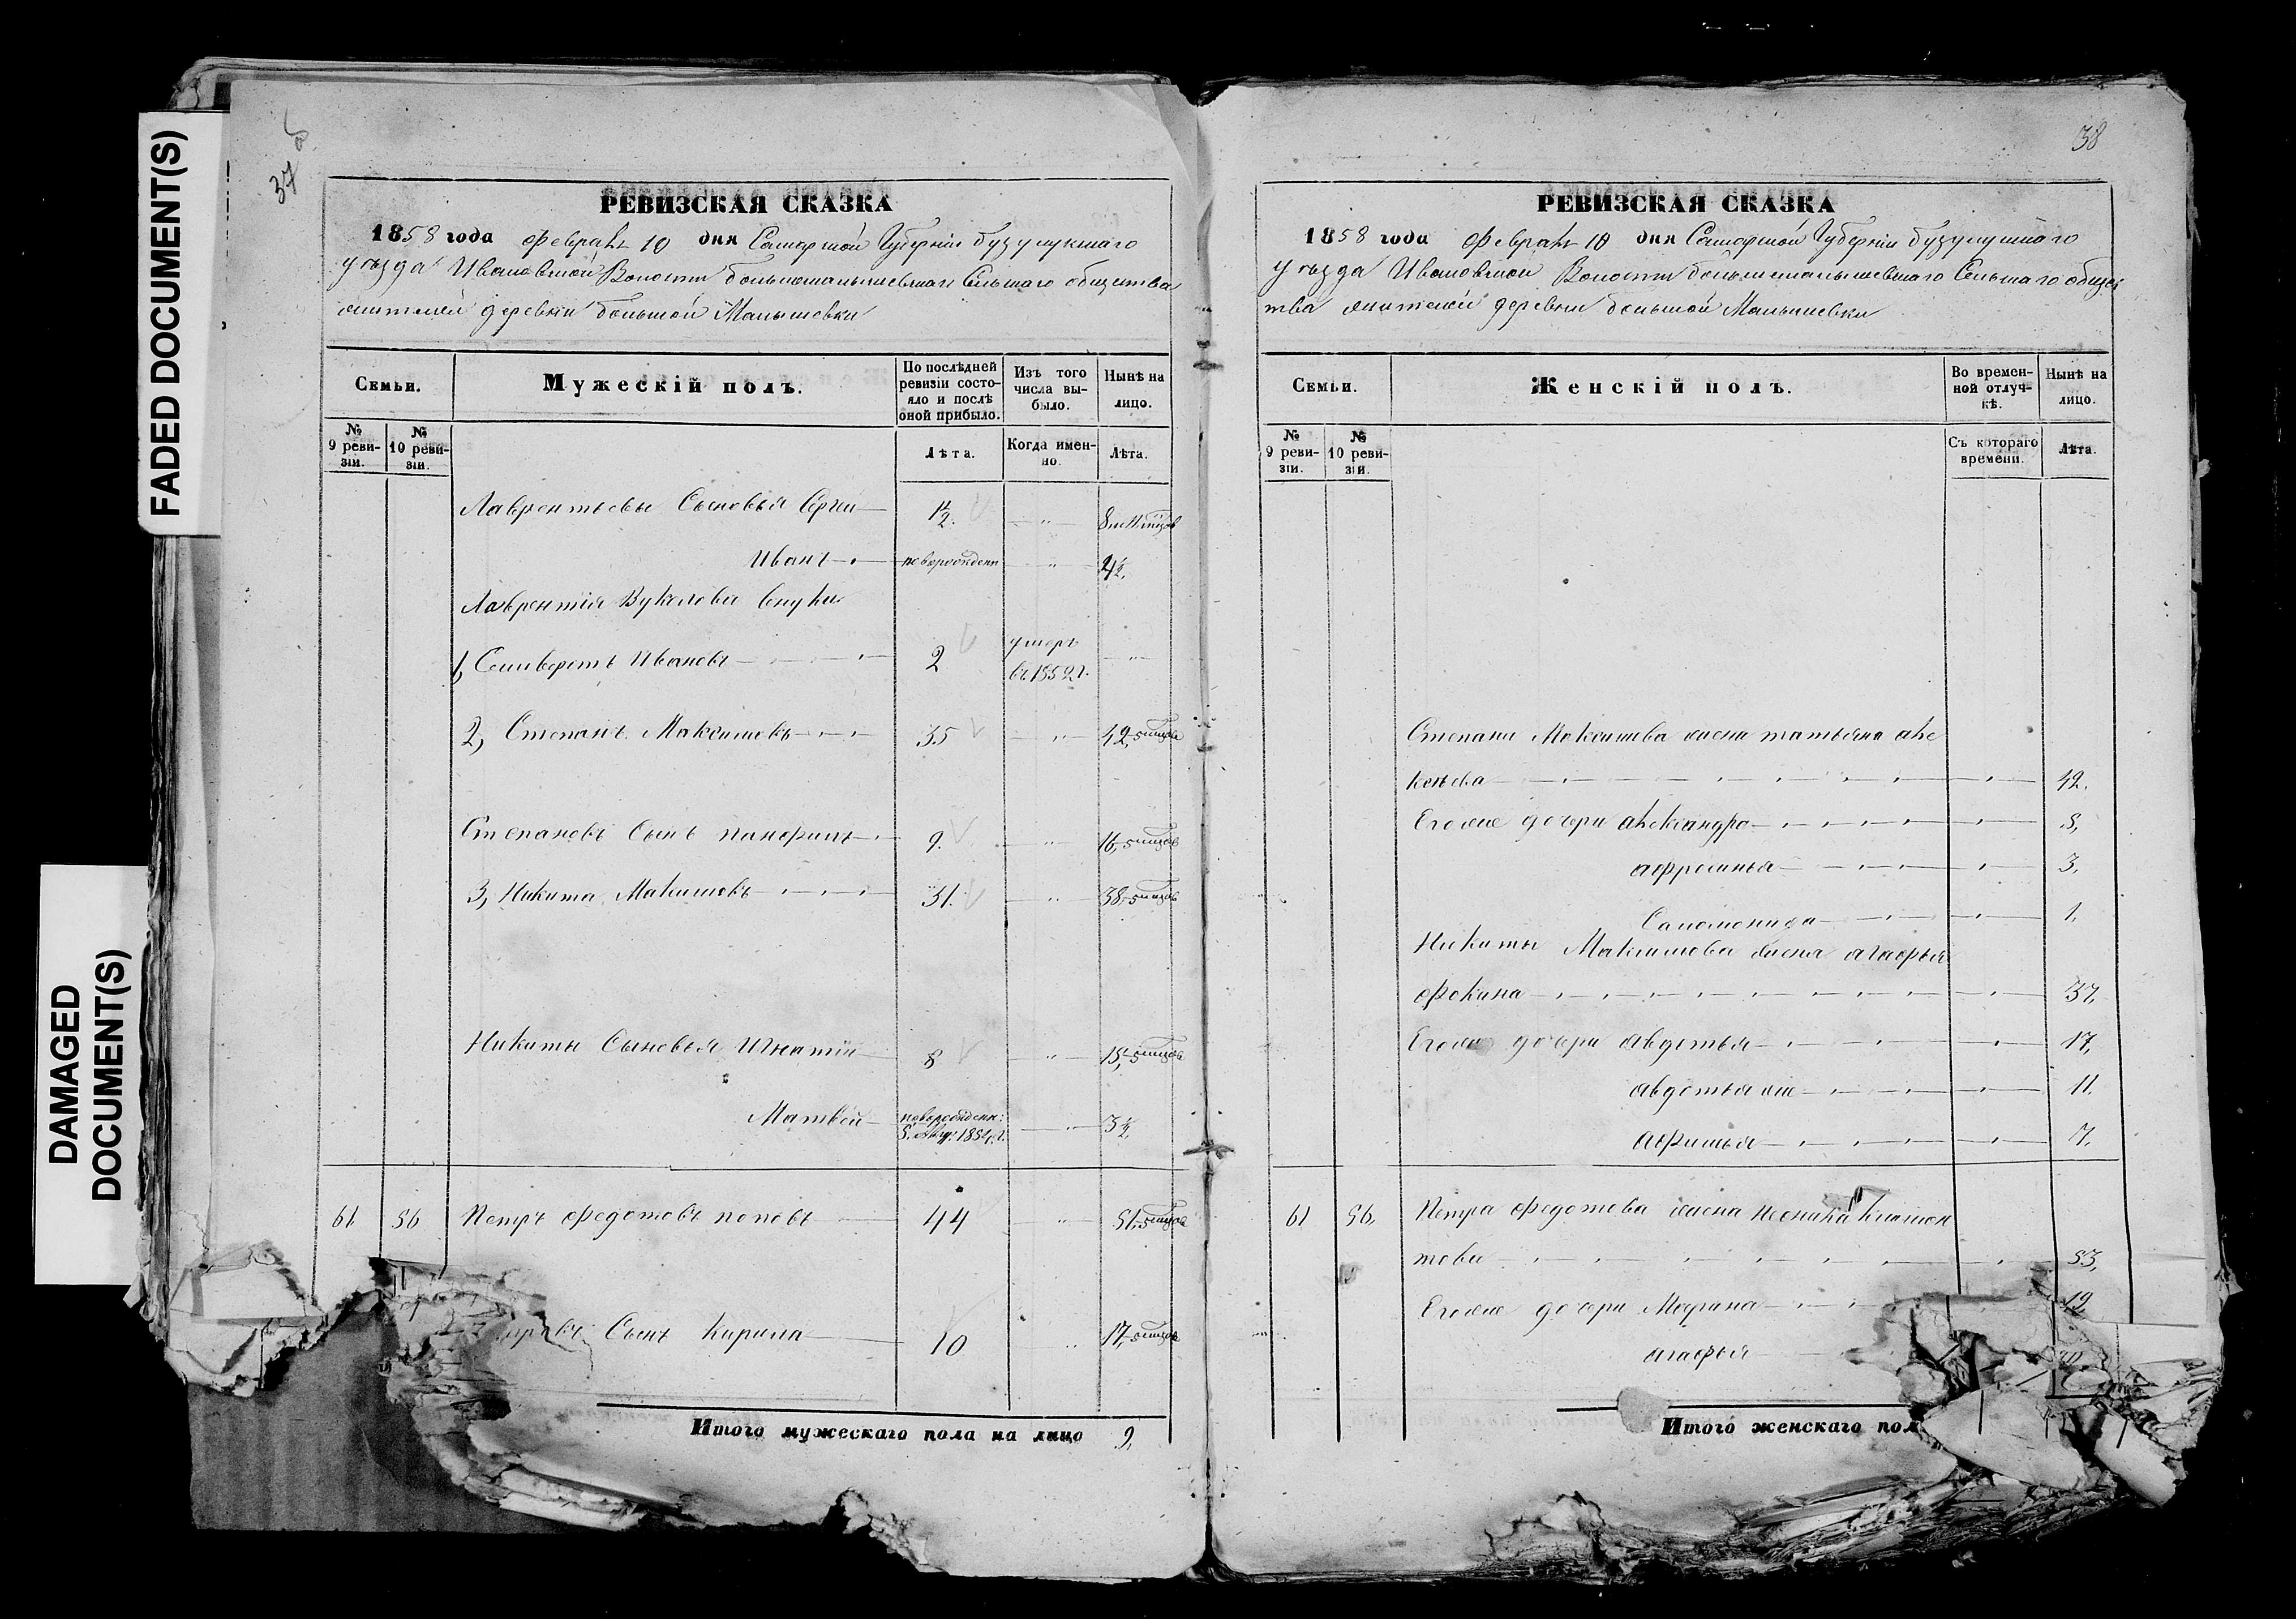 FADED DOCUMENT(S)
DAMAGED
DOCUMENT(S)
37
РЕВИЗСКАЯ СКАЗКА
1858 года февраля 10 дня Самарской Губернiи бузулукскаго
уѣзда Ивановской Волости большемалышевскаго Сельскаго общества
жителей деревни большой Малышевки
Семьи.
Мужескiй полъ.
По послѣдней ревизiи состояло и послѣ оной прибыло.
Изъ того числа выбыло.
Нынѣ на лицо.
№ 9 ревизiи.
№ 10 ревизiи.
Лѣта.
Когда именно.
Лѣта.
Лаврентьевы Сыновья Сергiй 1½. 8
Иванъ новорожден
Лаврентiя Вуколова внуки
1, Селиверстъ Ивановъ 2 умеръ въ 1852 г.
2, Степанъ Максимовъ 35 42,
Степановъ Сынъ панфилъ 9. 16,
3, Никита Максимовъ 31. 38,
Никиты Сыновья Игнатiй 8 15,
Матвей новорожден: 5. Авг. 1854. г. 3½
61 56 Петръ федотовъ поповъ 44 51,
Сынъ Кирила 10 17,
Итого мужескаго пола на лицо 9,
38
РЕВИЗСКАЯ СКАЗКА
1858 года февраля 10 дня Самарской Губернiи бузулускаго
уѣзда Ивановской Волости большемалышевскаго Сельскаго общес
тва жителей деревни большой Малышевки
Семьи.
Женскiй полъ.
Во временной отлучкѣ.
Нынѣ на лицо.
№ 9 ревизiи.
№ 10 ревизiи.
Съ котораго времени.
Лѣта.
Степана Максимова жена татьяна але
кеѣева 42.
Егоже дочери александра 8,
афросинья 3.
Саломонида 1.
Никиты Максимова жена агафья
фокина 37.
Егоже дочери авдотья 17,
авдотья же 11.
афимья 7.
61 56, Петра федотова жена
това 53,
Егоже дочери Мафина 19
агафья
Итого женскаго пол